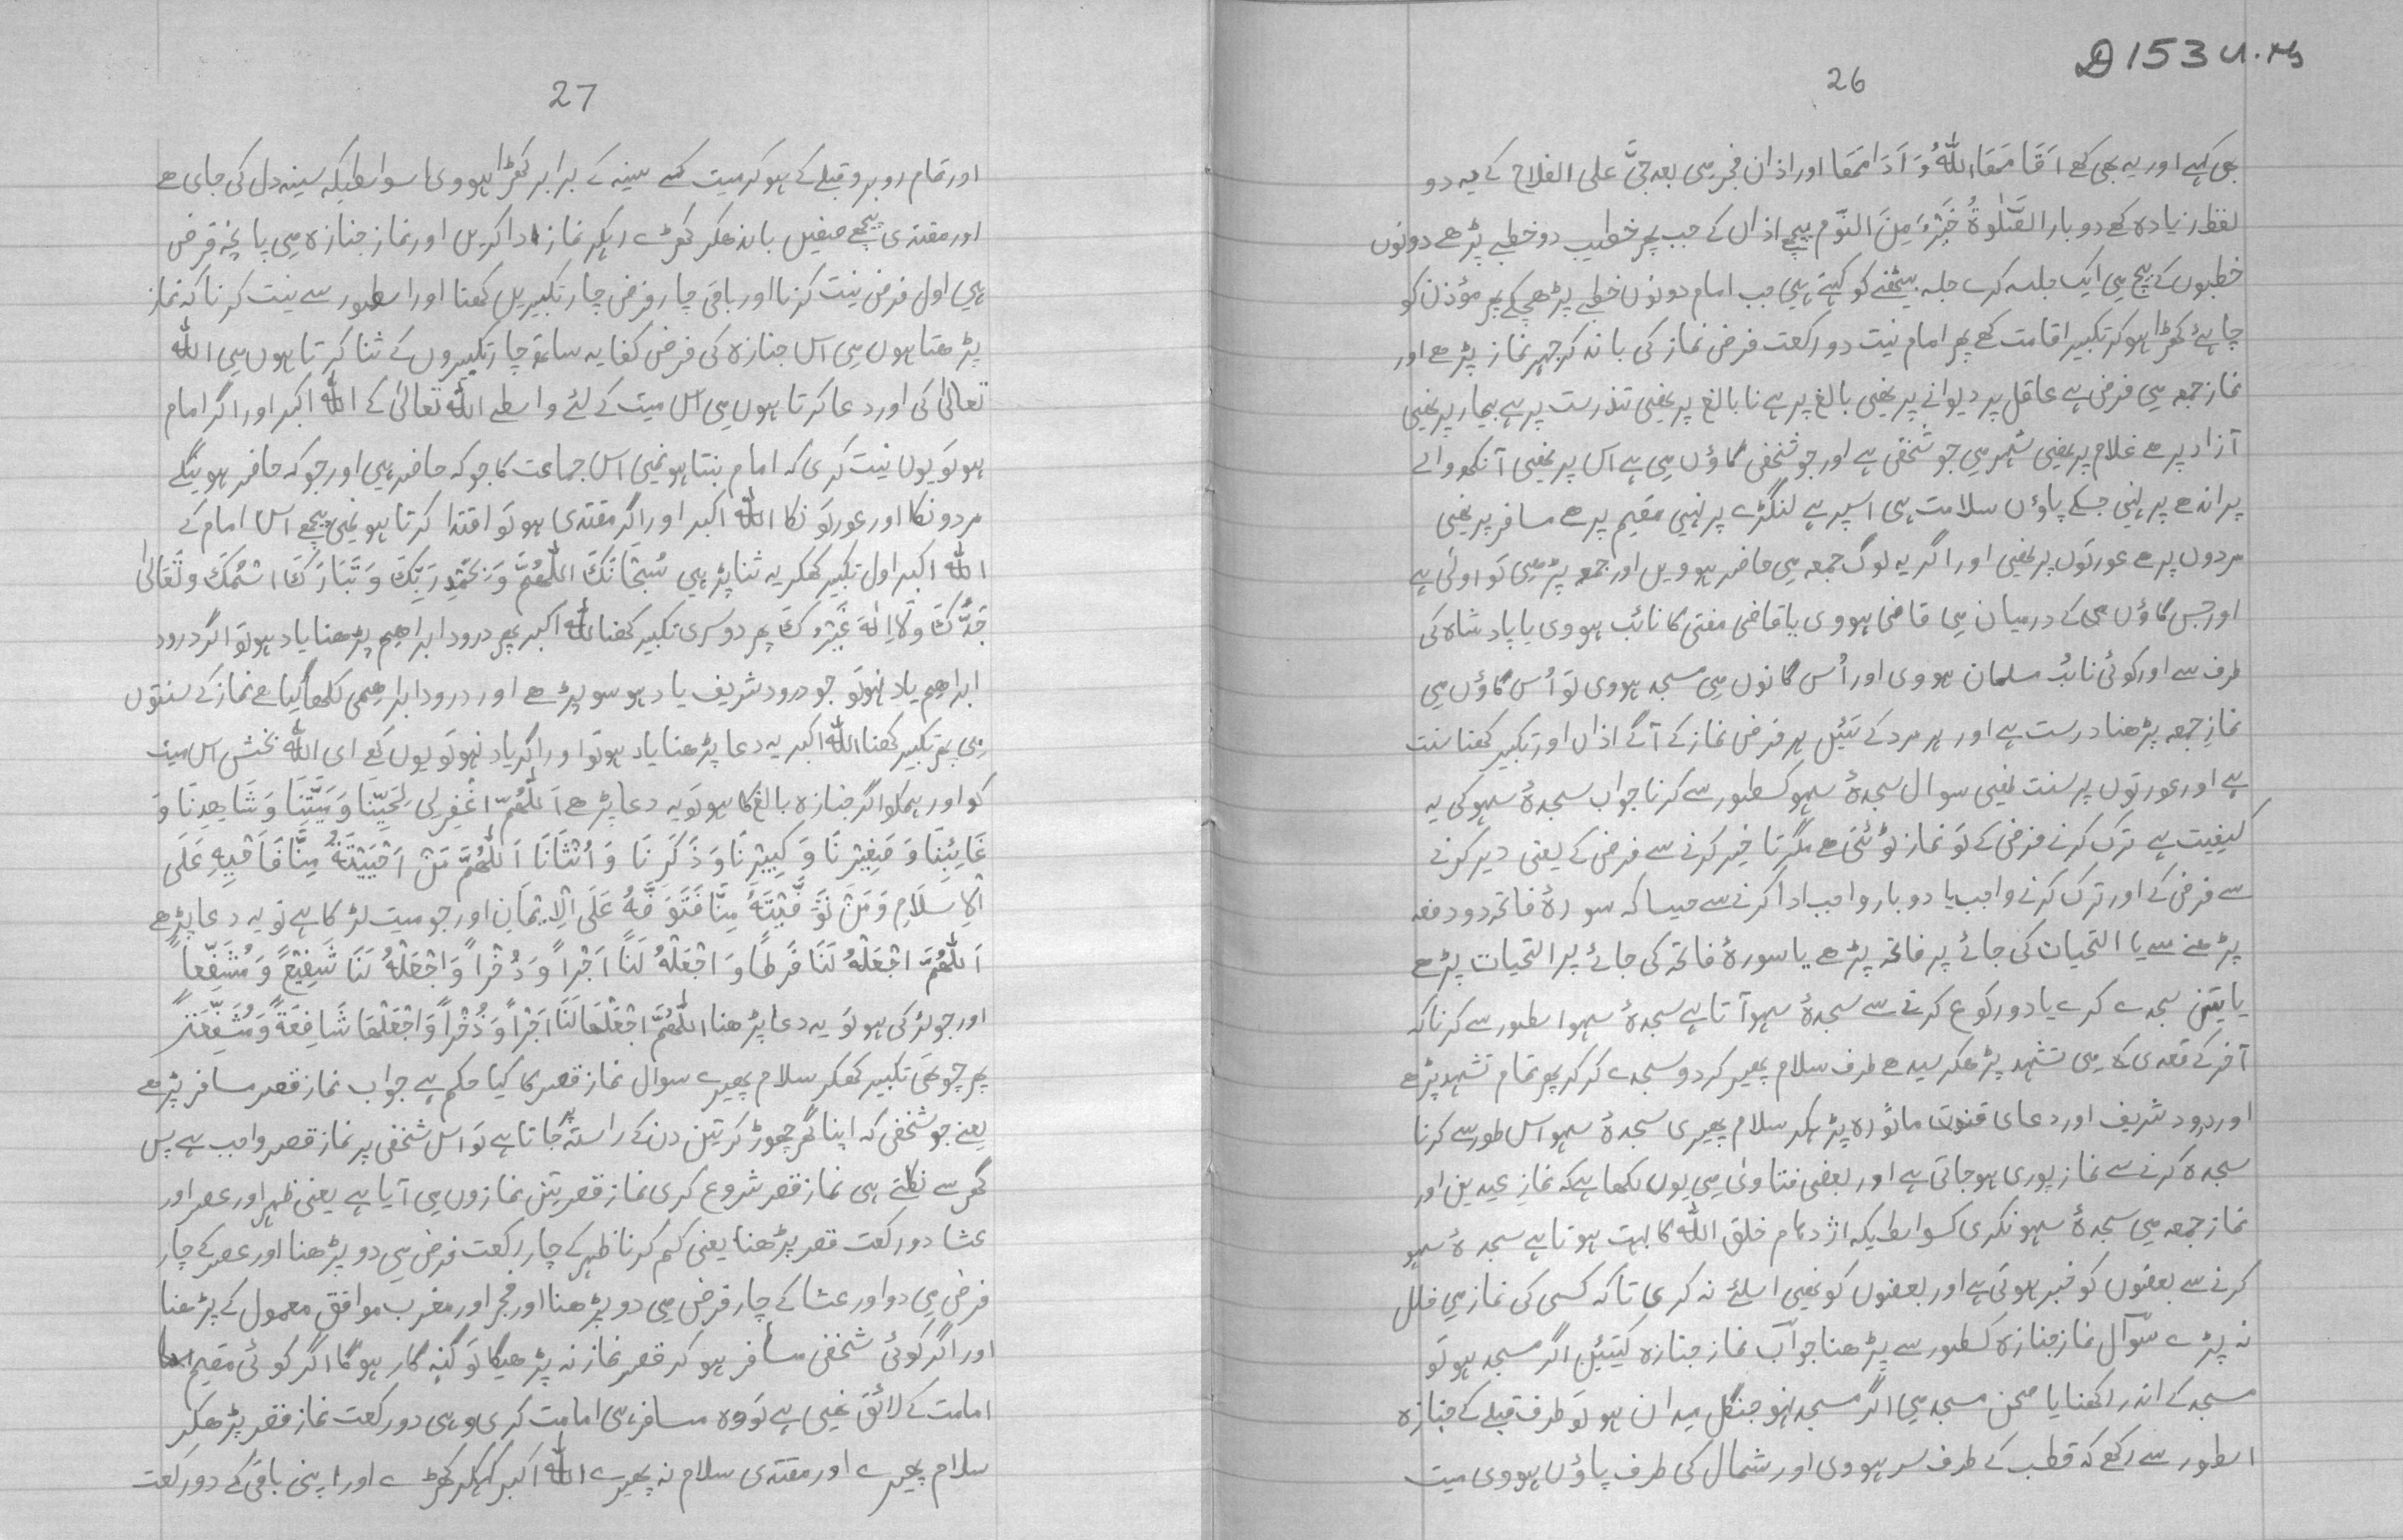 D 153 U. Ms
26
بھی کہے اور یہ بھی کہے اَقَامَھَا اللہُ وَ اَدَامَھَا اور اذان فجر میں بعد حیَّ علی الفلاح کے یہ دو
لفظ زیادہ کہے دو بار الصَّلٰوۃُ خَیْرٌ مِنَ النَّوم پیچھے اذان کے جب پھر خطیب دو خطبے پڑھے دونوں
خطبوں کے بیچ میں ایک جلسہ کرے جلسہ بیٹھنے کو کہتے ہیں جب امام دونوں خطبے پڑھ چکے پھر مؤذن کو
چاہئے کھڑا ہو کر تکبیر اقامت کہے پھر امام نیت دو رکعت فرض نماز کی باند کر جہر نماز پڑھے اور
نماز جمعہ میں فرض ہے عاقل پر دیوانے پر نہیں بالغ پر ہے نابالغ پر نہیں تندرست پر ہے بیمار پر نہیں
آزاد پر ھے غلام پر نہیں شہر میں جو شخص ہے اور جو شخص گاؤں میں ہے اس پر نہیں آنکھ والے
پر اندھے پر نہیں جسکے پاوؤں سلامت ہیں اسپر ہے لنگڑے پر نہیں مقیم پر ھے مسافر پر نہیں
مردوں پر ھے عورتوں پر نہیں اور اگر یہ لوگ جمعہ میں حاضر ہوویں اور جمعہ پڑھیں تو اولیٰ ہے
اور جس گاؤں کے درمیان میں قاضی ہووی یا قاضی مفتی کا نائب ہووی یا پادشاہ کی
طرف سے اور کوئی نائب مسلمان ہووی اور اُس گانوں میں مسجد ہووی تو اُس گاؤں میں
نمازِ جمعہ پڑھنا درست ہے اور ہر مرد کے تئیں ہر فرض نماز کے آگے اذاں اور تکبیر کہنا سنت
ہے اور عورتوں پر سنت نہیں سوال سجدۂ سہو کسطور سے کرنا جواب سجدۂ سہو کی یہ
کیفیت ہے ترک کرنے فرض کے تو نماز ٹوٹتی ھے مگر تاخیر کرنے سے فرض کے یعنی دیر کرنے
سے فرض کے اور ترک کرنے واجب یا دو بار واجب ادا کرنے سے جیسا کہ سورۂ فاتحہ دو دفعہ
پڑھنے سے یا التحیات کی جائے پر فاتحہ پڑھے یا سورۂ فاتحہ کی جائے پر التحیات پڑھے
یا تین سجدے کرے یا دو رکوع کرنے سے سجدۂ سہو آتا ہے سجدۂ سہو اسطور سے کرنا کہ
آخر کے قعدی میں تشہد پڑھکر سیدھے طرف سلام پھیر کر دو سجدے کر کر پھر تمام تشہد پڑھے
اور درود شریف اور دعای قنوت ماثورہ پڑہکر سلام پھیری سجدۂ سہو اس طور سے کرنا
سجدہ کرنے سے نماز پوری ہو جاتی ہے اور بعضی فتاویٰ میں یوں لکھا ہے کہ نمازِ عیدین اور
نماز جمعہ میں سجدۂ سہو نکری کسواسطیکہ اژدہام خلق اللہ کا بہت ہوتا ہے سجدۂ سہو
کرنے سے بعضوں کو خبر ہوتی ہے اور بعضوں کو نہیں اسلئے نہ کری تاکہ کسی کی نماز میں خلل
نہ پڑے سوال نماز جنازہ کسطور سے پڑھنا جواب نماز جنازہ کیتئیں اگر مسجد ہو تو
مسجد کے اندر رکھنا یا صحن مسجد میں اگر مسجد نہو جنگل میدان ہو تو طرف قبلے کے جنازہ
اسطور سے رکھے کہ قطب کے طرف سر ہووی اور شمال کی طرف پاؤں ہووی میت
27
اور تمام روبرو قبلے کے ہو کر میت کے سینہ کے برابر کھڑا ہووی اسواسطیکہ سینہ دل کی جای ھے
اور مقتدی پیچھے صفیں باندھکر کھڑے رہکر نماز ادا کریں اور نماز جنازہ میں پانچ فرض
ہیں اول فرض نیت کرنا اور باقی چار فرض چار تکبیریں کہنا اور اسطور سے نیت کرنا کہ نماز
پڑھتا ہوں میں اس جنازہ کی فرض کفایہ ساتھ چار تکبیروں کے ثنا کرتا ہوں میں اللہ
تعالیٰ کی اور دعا کرتا ہوں میں اس میت کے لئے واسطے اللہ تعالیٰ کے اللہ اکبر اور اگر امام
ہو تو یوں نیت کری کہ امام بنتا ہوں میں اس جماعت کا جو کہ حاضر ہیں اور جو کہ حاضر ہوینگے
مردونکا اور عورتونکا اللہ اکبر اور اگر مقتدی ہو تو اقتدا کرتا ہوں میں پیچھے اس امام کے
اللہ اکبر اول تکبیر کھکر یہ ثنا پڑہی سُبْحَانَکَ اللّٰھُمَّ وَبِحَمْدِ رَبِّکَ وَتَبَارَکَ اسْمُکَ وتَعَالیٰ
جَدُّکَ وَلَااِلٰہَ غَیْرُکَ پھر دوسری تکبیر کہنا اللہ اکبر پھر درود ابراھیم پڑھنا یاد ہو تو اگر درود
ابراھیم یاد نہو تو جو درود شریف یاد ہو سو پڑھے اور درود ابراھیمی لکھا گیا ھے نماز کے سنتوں
میں پھر تکبیر کہنا اللہ اکبر یہ دعا پڑھنا یاد ہو تو اور اگر یاد نہو تو یوں کہے ای اللہ بخش اس میت
کو اور ہمکو اگر جنازہ بالغ کا ہو تو یہ دعا پڑھے اَللّٰھُمَّ اغْفِرْلِی لِحَیِّنَا وَمَیِّتِنَا وَشَاھِدِنَا وَ
غَایِبِنَا وَصَغِیْرِنَا وَکَبِیْرِنَا وَذَکَرِنَا وَاُنْثَانَا اَللّٰھُمَّ مَنْ اَحْیَیْتَہٗ مِنَّا فَاَحْیِہِ عَلَی
الْاِسْلَامِ وَمَنْ تَوَفَّیْتَہٗ مِنَّا فَتَوَفَّہُ عَلَی الْاِیْمَانِ اور جو میت لڑکا ہے تو یہ دعا پڑھے
اَللّٰھُمَّ اجْعَلْہُ لَنَا فَرَطًا وَ اجْعَلْہُ لَنَا اَجْراً وَ ذُخْراً وَاجْعَلْہُ لَنَا شَفِیْعً وَمُشَفَّعاً
اور جو لڑکی ہو تو یہ دعا پڑھنا اللّٰھُمَّ اجْعَلْھَا لَنَا اَجْراً وَذُخْراً وَاجْعَلْھَا شَافِعَۃً وَمُشَفَّعَۃً
پھر چوتھی تکبیر کھکر سلام پھیرے سوال نماز قصر کا کیا حکم ہے جواب نماز قصر مسافر پڑھے
یعنے جو شخص کہ اپنا گھر چھوڑ کر تین دن کے راستہ پر جاتا ہے تو اس شخص پر نماز قصر واجب ہے پس
گھر سے نکلتے ہی نماز قصر شروع کری نماز قصر تین نمازوں میں آیا ہے یعنی ظہر اور عصر اور
عشا دو رکعت قصر پڑھنا یعنی کم کرنا ظہر کے چار رکعت فرض میں دو پڑھنا اور عصر کے چار
فرض میں دو اور عشا کے چار فرض میں دو پڑھنا اور فجر اور مغرب موافق معمول کے پڑھنا
اور اگر کوئی شخص مسافر ہو کر قصر نماز نہ پڑھیگا تو گنہ گار ہوگا اگر کوئی مقیم
امامت کے لائق نہیں ہے تو وہ مسافر ہی امامت کری وہی دو رکعت نماز قصر پڑھکر
سلام پھیرے اور مقتدی سلام نہ پھیرے اللہ اکبر کہکر کھڑے اور اپنی باقی کے دو رکعت